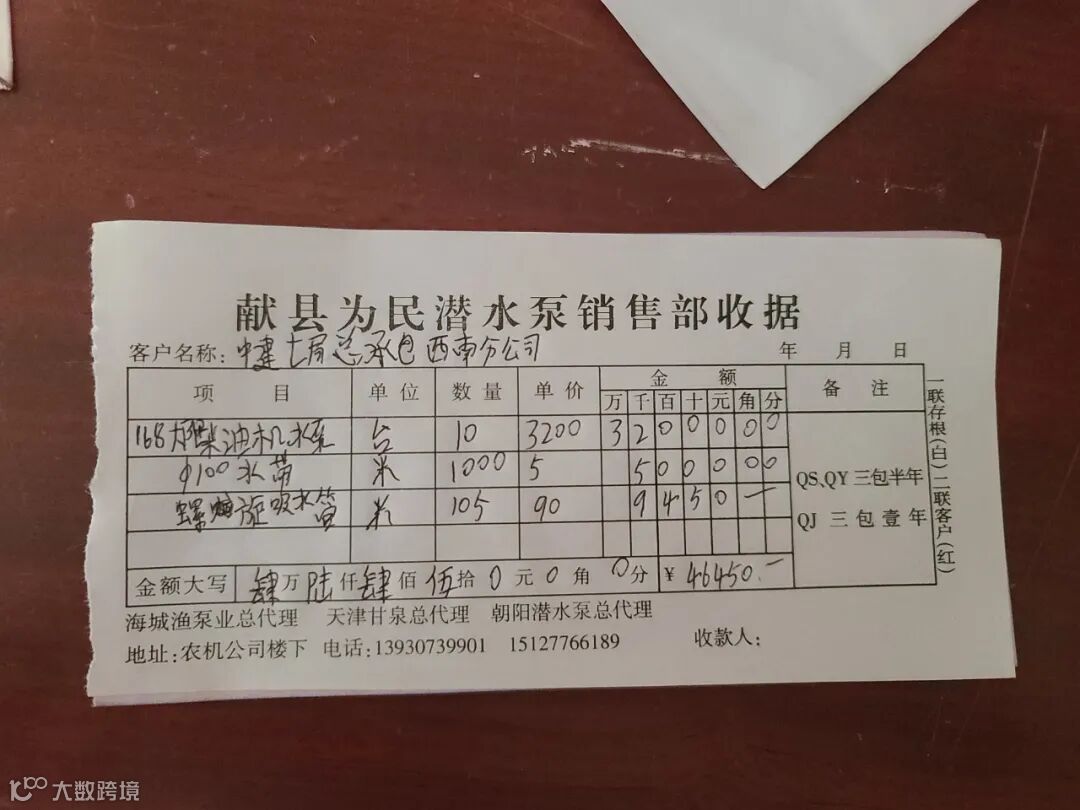 献县为民潜水泵销售部收据
客户名称: 中建七局总承包西南分公司 年 月 日
项 目 单位 数量 单价 金 额 备 注
万 千 百 十 元 角 分
168 柴油机水泵 台 10 3200 3 2 0 0 0 0 0
φ100水带 米 1000 5 5 0 0 0 0 0
螺旋吸水管 米 105 90 9 4 5 0 一
QS,QY 三包半年
QJ 三包壹年
金额大写 肆万陆仟肆佰伍拾0元0角0分 ¥ 46450.一
海城渔泵业总代理 天津甘泉总代理 朝阳潜水泵总代理
地址:农机公司楼下 电话:13930739901 15127766189 收款人:
一联存根(白)二联客户(红)
大数跨境